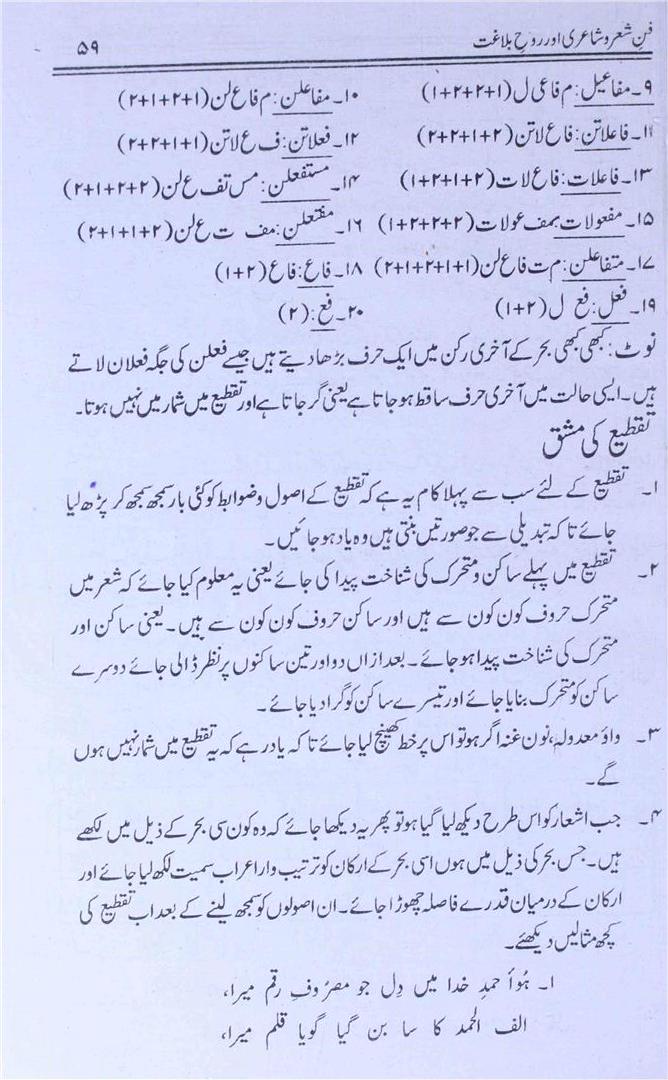 فنِ شعر و شاعری اور روحِ بلاغت ۵۹
۹۔ مفاعیل: م فاعی ل (۱+۲+۲+۱) ۱۰۔ مفاعلن: م فاع لن (۲+۱+۲+۱)
۱۱۔ فاعلاتن: فاع لاتن (۲+۲+۱+۲) ۱۲۔ فعلاتن: ف ع لاتن (۲+۲+۱+۱)
۱۳۔ فاعلات: فاع لات (۱+۲+۱+۲) ۱۴۔ مستفعلن: مس تف ع لن (۲+۱+۲+۲)
۱۵۔ مفعولات: مف عولات (۱+۲+۲+۲) ۱۶۔ مفتعلن: مف ت ع لن (۲+۱+۱+۲)
۱۷۔ متفاعلن: م ت فاع لن (۲+۱+۲+۱+۱) ۱۸۔ فاع: فاع (۱+۲)
۱۹۔ فعل: فع ل (۱+۲) ۲۰۔ فع: (۲)
نوٹ: کبھی کبھی بحر کے آخری رکن میں ایک حرف بڑھا دیتے ہیں جیسے فعلن کی جگہ فعلان لاتے
ہیں۔ ایسی حالت میں آخری حرف ساقط ہو جاتا ہے یعنی گر جاتا ہے اور تقطیع میں شمار میں نہیں ہوتا۔
تقطیع کی مشق
۱۔ تقطیع کے لئے سب سے پہلا کام یہ ہے کہ تقطیع کے اصول و ضوابط کو کئی بار سمجھ سمجھ کر پڑھ لیا
جائے تاکہ تبدیلی سے جو صورتیں بنتی ہیں وہ یاد ہو جائیں۔
۲۔ تقطیع میں پہلے ساکن و متحرک کی شناخت پیدا کی جائے یعنی یہ معلوم کیا جائے کہ شعر میں
متحرک حروف کون کون سے ہیں اور ساکن حروف کون کون سے ہیں۔ یعنی ساکن اور
متحرک کی شناخت پیدا ہو جائے۔ بعد ازاں دو اور تین ساکنوں پر نظر ڈالی جائے دوسرے
ساکن کو متحرک بنایا جائے اور تیسرے ساکن کو گرا دیا جائے۔
۳۔ واؤ معدولہ، نون غنہ اگر ہو تو اس پر خط کھینچ لیا جائے تاکہ یاد رہے کہ یہ تقطیع میں شمار نہیں ہوں
گے۔
۴۔ جب اشعار کو اس طرح دیکھ لیا گیا ہو تو پھر یہ دیکھا جائے کہ وہ کون سی بحر کے ذیل میں لکھے
ہیں۔ جس بحر کی ذیل میں ہوں اسی بحر کے ارکان کو ترتیب وار اعراب سمیت لکھ لیا جائے اور
ارکان کے درمیان قدرے فاصلہ چھوڑا جائے۔ ان اصولوں کو سمجھ لینے کے بعد اب تقطیع کی
کچھ مثالیں دیکھئے۔
۱۔ ہُوأ حمدِ خدا میں دِل جو مصرُوفِ رقم میرا،
الف الحمد کا سا بن گیا گویا قلم میرا،